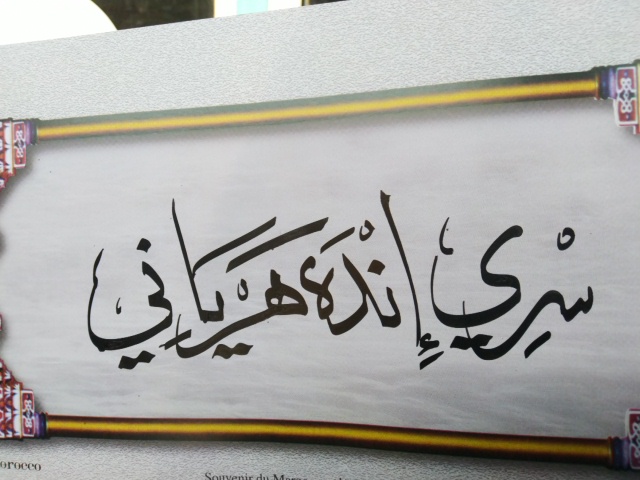 سْرِي إِنْدَه هَرْيَانِي
orocco
Souvenir du Maroc